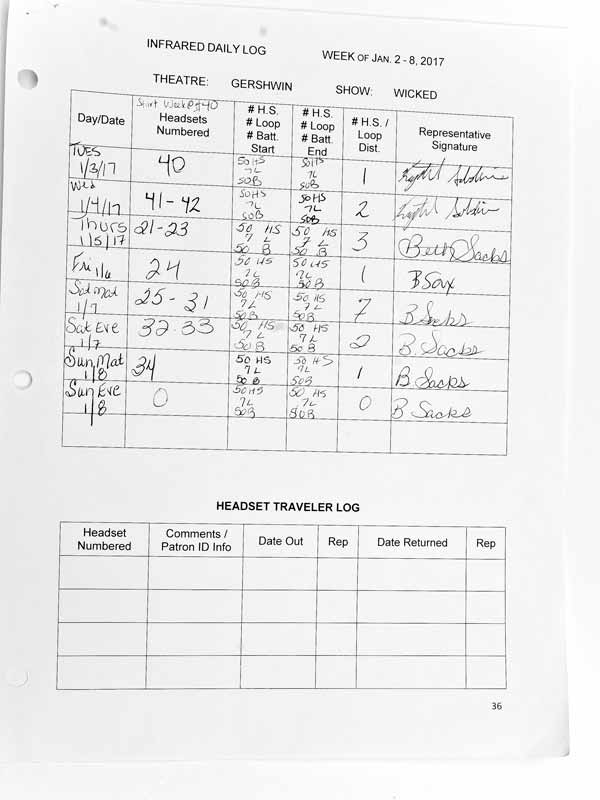 INFRARED DAILY LOG WEEK OF JAN. 2 - 8, 2017
THEATRE: GERSHWIN SHOW: WICKED
Start Week @ #40
Day/Date Headsets Numbered # H.S. # Loop # Batt. Start # H.S. # Loop # Batt. End # H.S. / Loop Dist. Representative Signature
TUES 1/3/17 40 50 HS 7L 50B 50 HS 7L 50B 1
Wed 1/4/17 41-42 50 HS 7L 50B 50 HS 7L 50B 2
Thurs 1/5/17 21-23 50 HS 7 L 50 B 50 HS 7 L 50 B 3 Beth Sacks
Fri 1/6 24 50 HS 7L 50B 50 HS 7L 50B 1 B Sax
Sat Mat 1/7 25 - 31 50 HS 7L 50B 50 HS 7L 50B 7 B Sacks
Sat Eve 1/7 32-33 50 HS 7L 50B 50 HS 7L 50B 2 B. Sacks
Sun Mat 1/8 34 50 HS 7L 50 B 50 HS 7L 50B 1 B Sacks
Sun Eve 1/8 0 50 HS 7L 50B 50 HS 7L 50B 0 B Sacks
HEADSET TRAVELER LOG
Headset Numbered Comments / Patron ID Info Date Out Rep Date Returned Rep
36